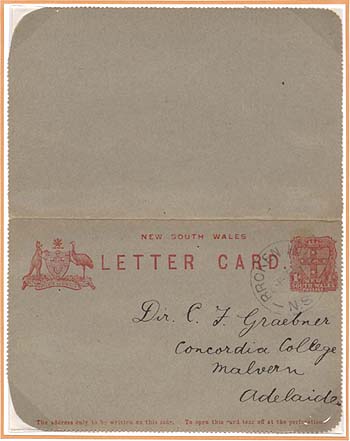 NEW SOUTH WALES
LETTER CARD
NEW
SOUTH WALES
Dir. C. F. Graebner
Concordia College
Malvern
Adelaide.
The address only to be written on this side. To open this card tear off at the perforation.